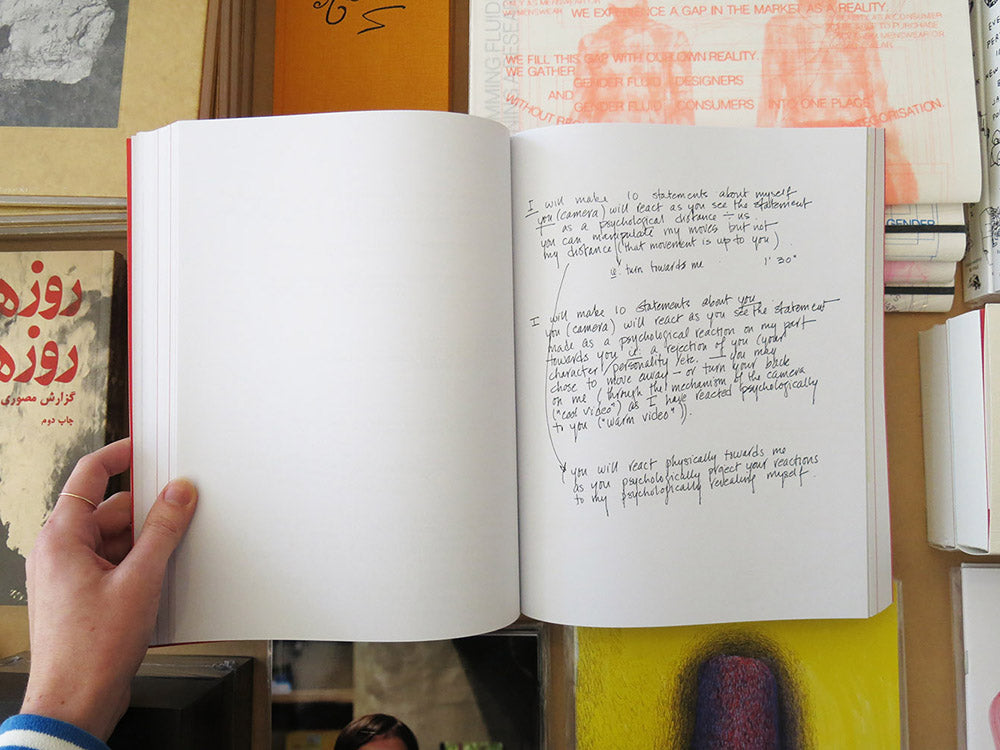 WE EXPERIENCE A GAP IN THE MARKET AS A REALITY.
WE FILL THIS GAP WITH OUR OWN REALITY.
WE GATHER
GENDER FLUID DESIGNERS
AND
GENDER FLUID CONSUMERS INTO ONE PLACE
WITHOUT
CATEGORISATION.
GENDER
روزه
روزه
گزارش مصوری
چاپ دوم
I will make 10 statements about myself
you (camera) will react as you see the statement
as a psychological distance ÷ us
you can manipulate my moves but not
my distance (that movement is up to you)
ie. turn towards me 1' 30"
I will make 10 statements about you
you (camera) will react as you see the statement
made as a psychological reaction on my part
towards you ie. a rejection of you (your
character / personality etc. I you may
chose to move away – or turn your back
on me (through the mechanism of the camera
("cool video") as I have reacted psychologically
to you ("warm video")).
you will react physically towards me
as you psychologically project your reactions
to my psychologically revealing myself.